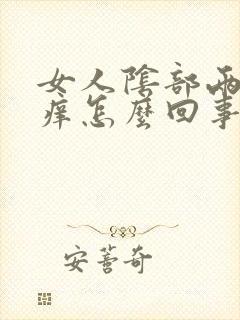 女人陰部兩
痒怎麼回事
安薈奇